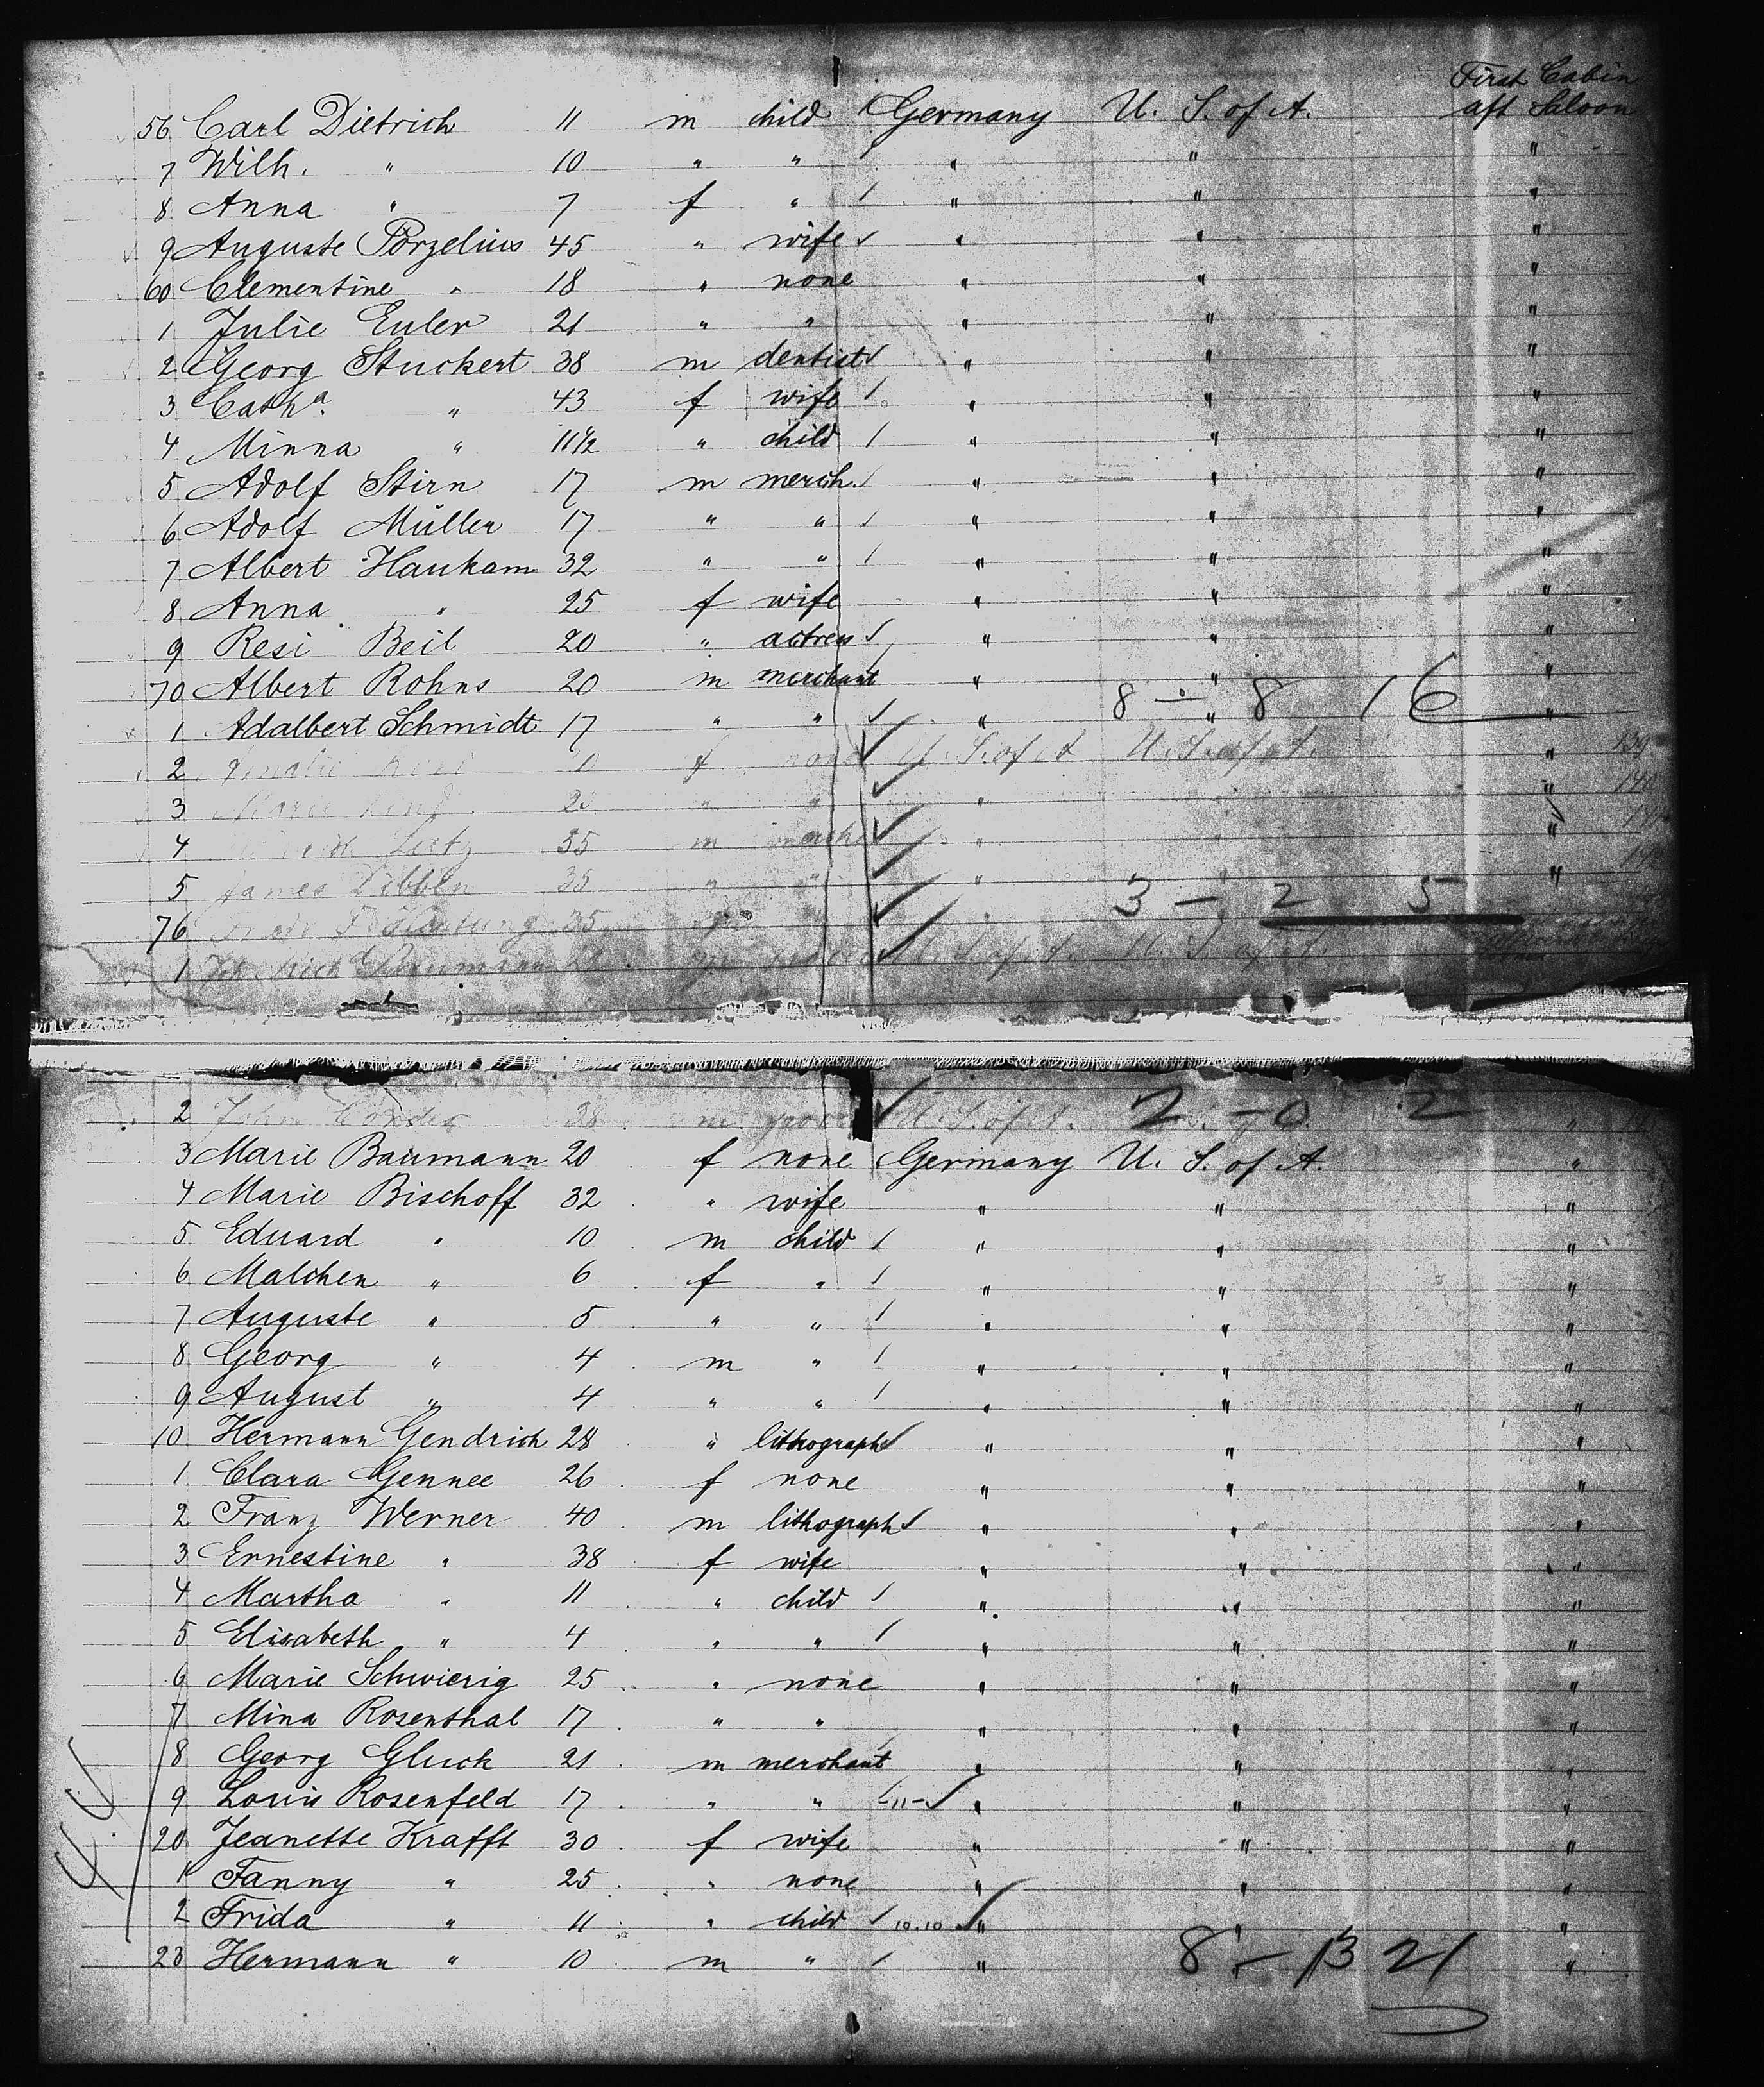 First Cabin
56 Carl Dietrich 11 m child Germany U. S. of A. aft Saloon
7 Wilh. " 10 " " " " "
8 Anna " 7 f " " " "
9 Auguste Porzelius 45 " wife " " "
60 Clementine " 18 " none " " "
1 Julie Euler 21 " " " " "
2 Georg Stuckert 38 m dentist " " "
3 Catha. " 43 f wife " " "
4 Minna " 11 1/2 " child " " "
5 Adolf Stirn 17 m merch. " " "
6 Adolf Müller 17 " " " " "
7 Albert Haukam 32 " " " " "
8 Anna " 25 f wife " " "
9 Resi Beil 20 " actress " " "
70 Albert Rohns 20 m merchant " " "
8 - 8 16
1 Adalbert Schmidt 17 " " " " "
2 f U. S. of A U. S. of A. " 139
3 Marie " " " " 140
4 35 m " "
5 James Dibben 35 " " " " "
3 - 2 5
76 35
1 Baumann U. S. of A. U. S. of A.
2 John 38 m U. S. of A. 2 - 0 2 "
3 Marie Baumann 20 f none Germany U. S. of A. "
4 Marie Bischoff 32 " wife " " "
5 Eduard " 10 m child " " "
6 Malchen " 6 f " " " "
7 Auguste " 5 " " " " "
8 Georg " 4 m " " " "
9 August " 4 " " " " "
10 Hermann Gendrich 28 " lithograph " " "
1 Clara Gennee 26 f none " " "
2 Franz Werner 40 m lithograph " " "
3 Ernestine " 38 f wife " " "
4 Martha " 11 " child " " "
5 Elisabeth " 4 " " " " "
6 Marie Schwierig 25 " none " " "
7 Mina Rosenthal 17 " " " " "
8 Georg Gluck 21 m merchant " " "
9 Rosenfeld 17 " " -11- " " "
20 Jeanette Krafft 30 f wife " " "
1 Fanny " 25 " none " " "
2 Frida " 11 " child 10.10 " " "
23 Hermann " 10 m " " " "
8 - 13 21